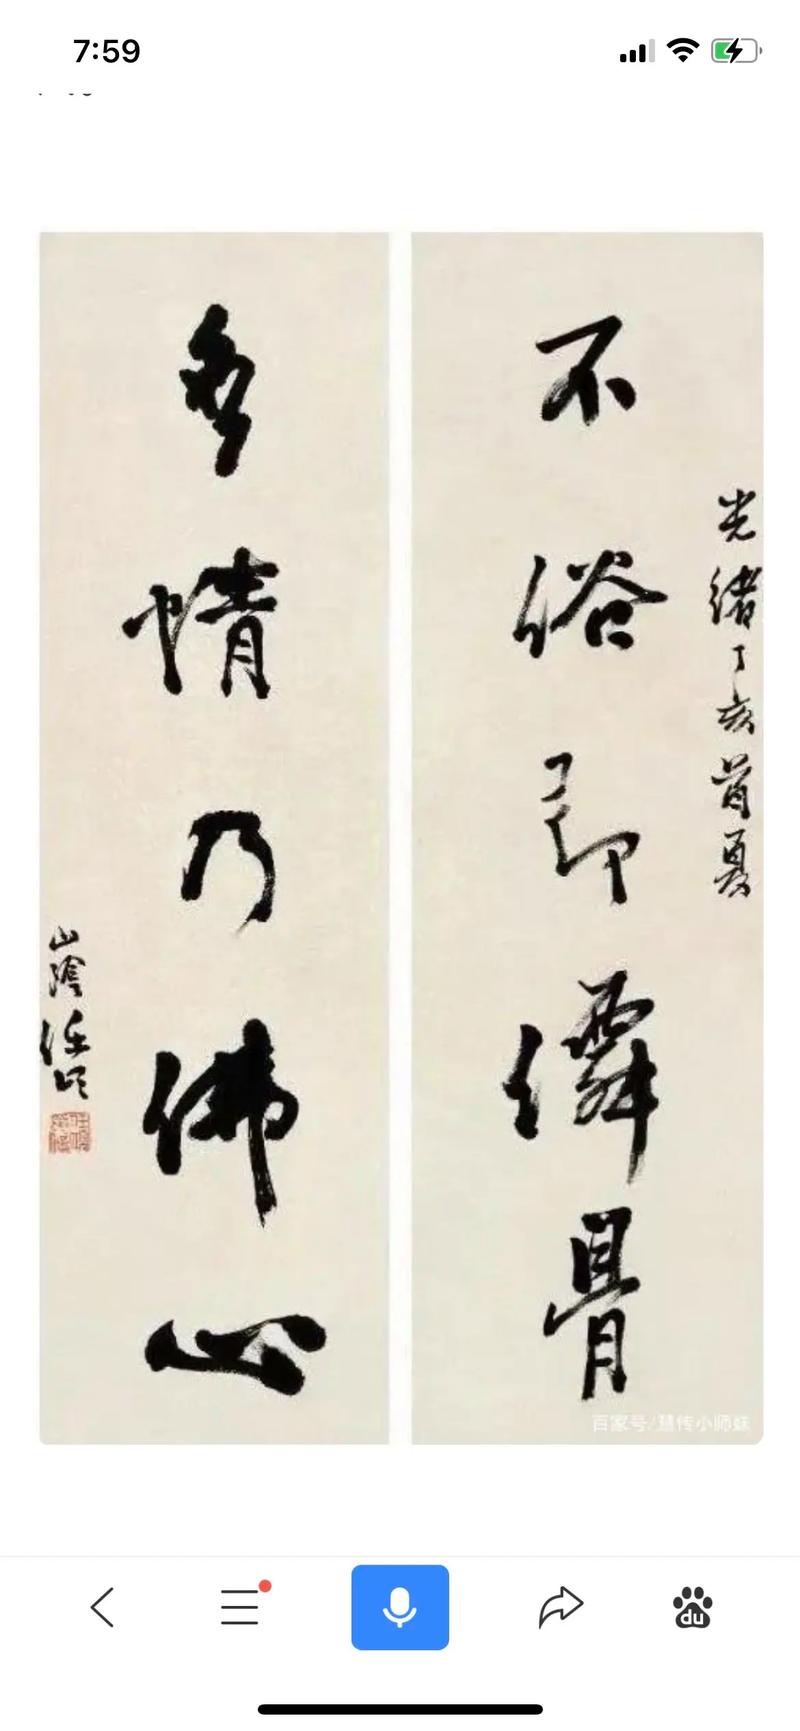 7:59
光緒丁亥首夏
不俗即僊骨
多情乃佛心
山陰任頤
百家号/慧传小师妹
du